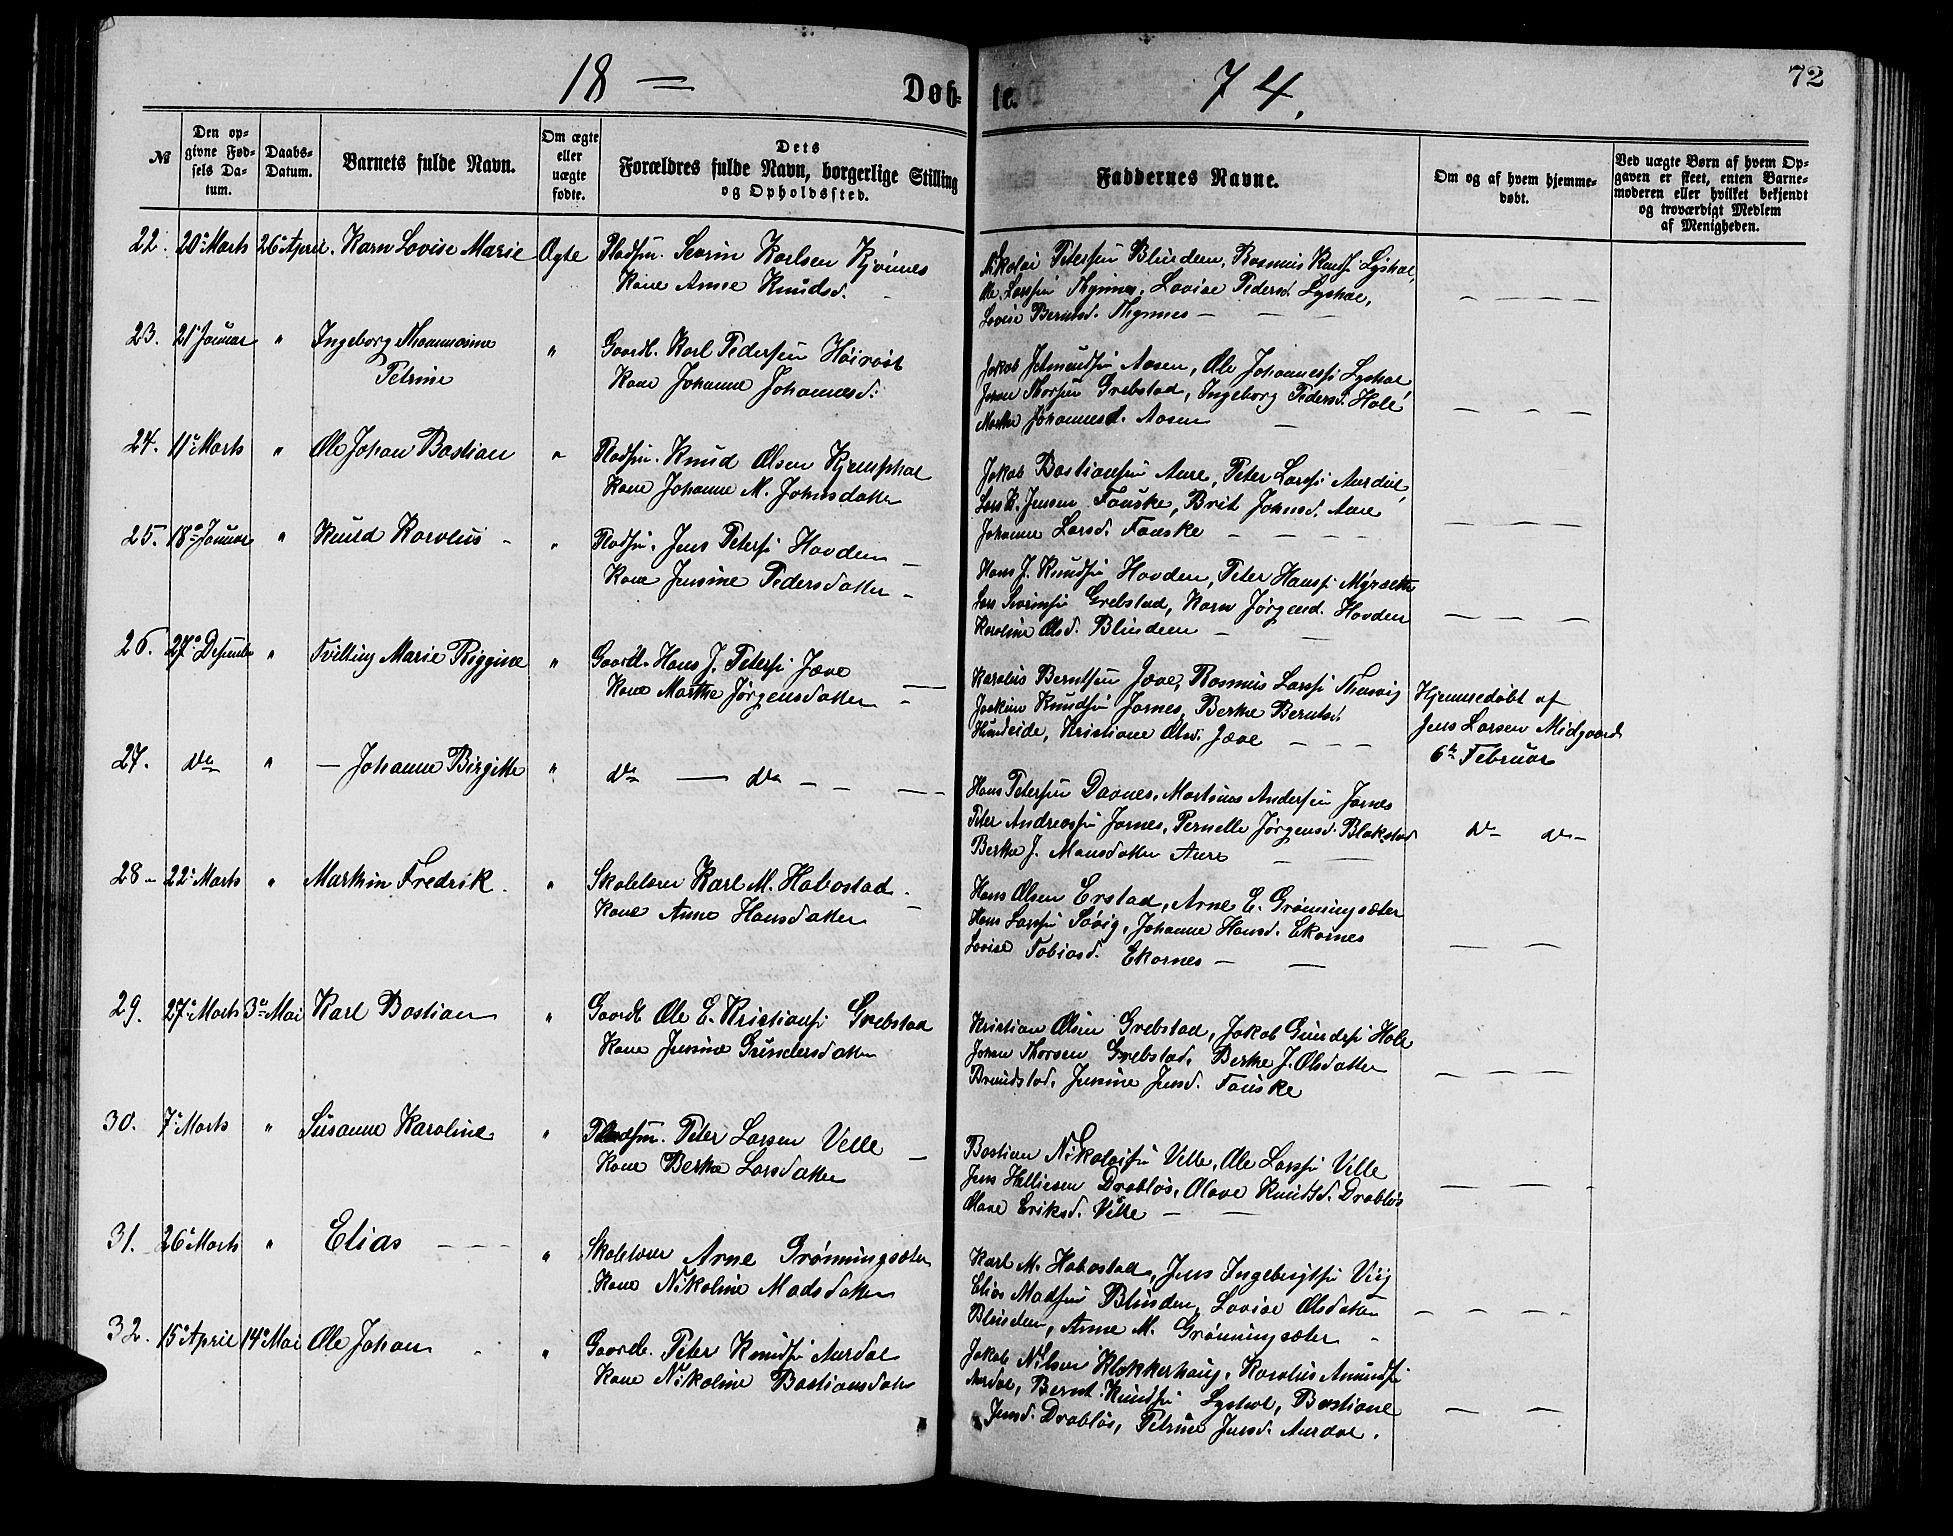 18 = Døb- te. 74. 72
№
Den op-
givne Fød-
sels Da-
tum.
Daabs-
Datum.
Barnets fulde Navn.
Om ægte
eller
uægte
fødte.
Dets
Forældres fulde Navn, borgerlige Stilling
og Opholdssted.
Faddernes Navne.
Om og af hvem hjemme-
døbt.
Ved uægte Børn af hvem Op-
gaven er skeet, enten Barne-
moderen eller hvilket bekjendt
og troværdigt Medlem
af Menigheden.
22. 20de Marts 26de April. Karn Lovise Marie Ægte Pladsm. Severin Karlsen
Kone Anne Knudsd.
Nikolai Petersen Blindem, Rasmus Knuds. Lyshol,
Ole Larssen Thynnes, Lovise Pedersd. Lyshol,
Lovise Berntsd. Thynnes — — —
23. 21 Januar " Ingeborg Thomasine
Petrine
" Gaardb. Karl Pedersen
Kone Johanne Johannesd.
Jakob Aasen, Ole Johanness. Lyshol
Johan Thorsen Grebstad, Ingeborg Pedersd. Hole
Marthe Johannesd. Aasen —
— — —
24. 11te Marts " Ole Johan Bastian " Pladsm. Knud Olsen
Kone Johanne M. Johnsdatter
Jakob Bastiansen Aure, Peter Larss. Aurdal,
Lars B. Jensen Fauske, Brit Johnsd. Aure
Johanne Larsd. Fauske — — — —
25. 18de Januar " Knud Karolus - " Pladsm. Jens Peters. Hovden —
Kone Jensine Pedersdatter -
Hans J. Knudsen Hovden, Peter Hanss. Myrsætter
Lars Severins. Grebstad, Karn Jørgensd. Hovden
Karoline Olsd. Blindem — —
26. 27de Desember " Tvilling Marie Riggine " Gaardb. Hans J. Peters. Jæve
Kone Marthe Jørgensdatter -
Karolus Berntsen Jæve, Rasmus Larss. Tusvig
Joakim Knudsen Jarnes, Berthe Berntsd.
Hundeide, Kristiane Olsd. Jæve — — —
Hjemmedøbt af
Jens Larsen Midgaard
6te Februar
27. do " — Johanne Birgitte " do — do — — —
Hans Petersen Davnes, Martinus Andersen Jarnes
Peter Andreassen Jarnes, Pernelle Jørgensd. Blakstad
Berthe J. Mansdatter Aure — —
do do
28 - 22de Marts " Marthin Fredrik. " Skolelærer Karl M. Habostad -
Kone Anne Hansdatter —
Hans Olsen Erstad, Arne E. Grønningsæter
Hans Larssen Søvig, Johanne Hansd. Ekornes
Lovise Tobiasd. Ekornes — —
29. 27de Marts 3de Mai Karl Bastian " Gaardb. Ole E. Kristians. Grebstad
Kone Jensine Gundersdatter
Kristian Olsen Grebstad, Jakob Hole
Johan Thorsen Grebstad, Berthe J. Olsdatter
Brundstad, Jensine Jensd. Fauske
30. 7de Marts " Susanne Karoline " Pladsm. Peter Larsen Velle —
Kone Berthe Larsdatter
Bastian Nikolaisen Velle, Ole Larssen Velle
Jens Helliesen Drabløs, Olave Knudsd. Drabløs
Olave Eriksd. Velle — —
31. 26de Marts " Elias — — — " Skolelærer Arne Grønningsæter
Kone Nikoline Madsdatter
Karl M. Habostad, Jens Ingebrigtsen Viig
Elias Madsen Blindem, Lovise Olsdatter
Blindem, Anne M. Grønningsæter -
32. 15de April 14de Mai Ole Johan - " Gaardb. Peter Knuds. Aurdal
Kone Nikoline Bastiansdatter
Jakob Nilsen Klokkerhaug, Karolus Amunds.
Aurdal, Bernt Knudsen Lyshol, Bastiane
Jensd. Drabløs, Petrine Jensd. Aurdal.